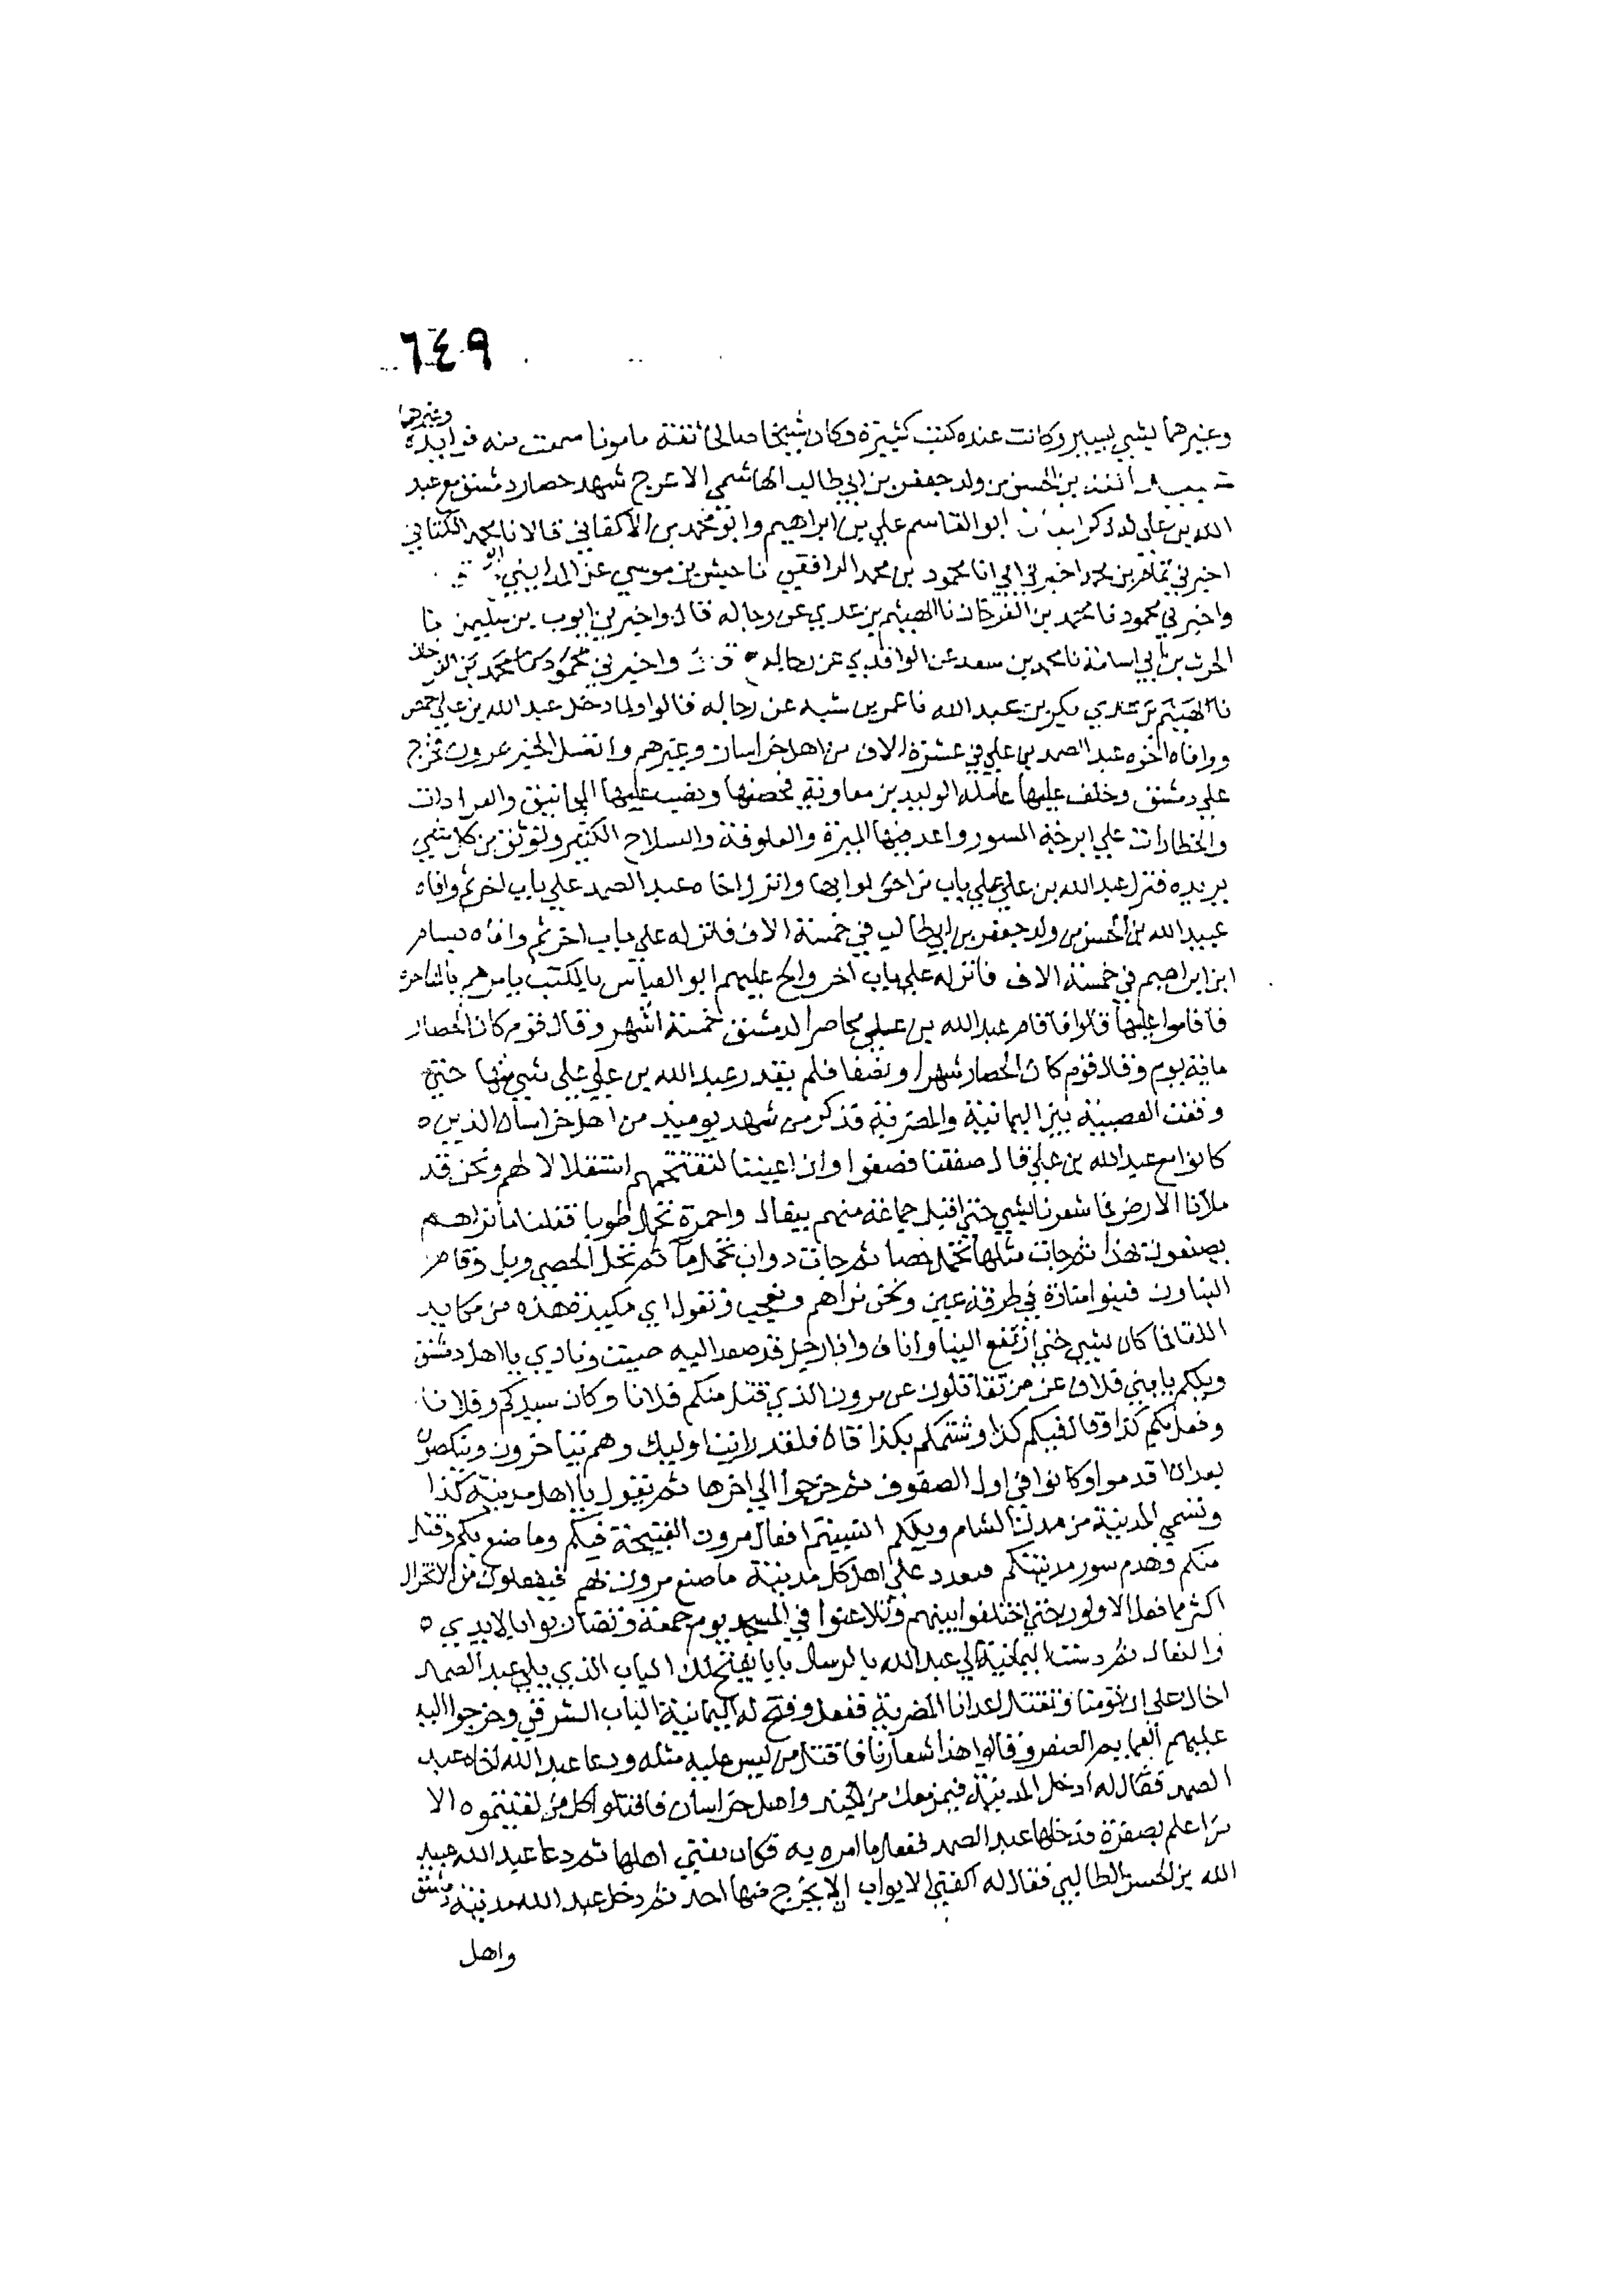 ٦٤٩
وغيرهما
وغيرهما بشي يسير وكانت عنده كتب كثيرة وكان شيخا صالحا ثقة مامونا سمعت منه فوايده
بن الحسن من ولد جعفر بن ابي طالب الهاشمي الاعرج شهد حصار دمشق مع عبد
الله بن علي له ذكر ابو القاسم علي بن ابراهيم وابو محمد بن الاكفاني قالا نا محمد الكتاني
اخبرني تمام بن محمد اخبرني ابي انا محمود بن محمد الرافقي نا حبش بن موسي عن المدايني
واخبرني محمود نا محمد بن الفرخان نا الهيثم بن عدي عن رجاله قال واخبرني ايوب بن سليمن نا
الحرث بن ابي اسامة نا محمد بن سعد عن الواقدي عن رجاله واخبرني محمود نا محمد بن الفرخان
نا الهيثم بن عدي بكير بن عبد الله نا عمر بن شبه عن رجاله قالوا ولما دخل عبد الله بن علي حمص
ووافاه اخوه عبد الصمد بن علي في عشرة الاف من اهل خراسان وغيرهم واتصل الخبر بمرون فخرج
علي دمشق وخلف عليها عامله الوليد بن معاوية فحصنها ونصب عليها المجانيق والعرادات
والخطارات علي ابرجة السور واعد فيها الميرة والعلوفة والسلاح الكثير وتوثق من كل شي
يريده فنزل عبد الله بن علي علي باب من احد ابوابها وانزل اخاه عبد الصمد علي باب اخر ثم وافاه
عبيد الله بن الحسن من ولد جعفر بن ابي طالب في خمسة الاف فانزله علي باب اخر ثم وافاه بسام
ابن ابراهيم في خمسة الاف فانزله علي باب اخر والح عليهم ابو العباس بالكتب يامرهم بالمناجزة
فاقاموا عليها قالوا فاقام عبد الله بن علي محاصرا لدمشق خمسة اشهر وقال قوم كان الحصار
ماية يوم وقال قوم كان الحصار شهرا ونصفا فلم يقدر عبد الله بن علي علي شي منها حتي
وقعت العصبية بين اليمانية والمضرية فذكر من شهد يوميذ من اهل خراسان الذين
كانوا مع عبد الله بن علي قال صففنا فصفوا وان اعيننا لتقتحمهم استقلالا لهم ونحن قد
ملانا الارض فما شعرنا بشي حتي اقبل جماعة منهم ببغال واحمرة تحمل طوبا فقلنا ما تراهم
يصنعون بهذا ثم جات مثلها تحمل جصا ثم جات دواب تحمل ما ثم نخل الجص وبل وقام
البناون فبنوا منارة في طرفة عين ونحن نراهم ونعجب ونقول اي مكيدة هذه من مكايد
اللقا فما كان بشي حتي ارتفع البنا وانا ف واذا رجل قد صعد اليه صيت ونادي يا اهل دمشق
ويلكم يا بني فلان عن من تقاتلون عن مرون الذي قتل منكم فلانا وكان سيدكم وفلانا
وفعل بكم كذا وقال فيكم كذا وشتمكم بكذا قال فلقد راينا اوليك وهم يتاخرون وينكصون
بعد ان اقدموا وكانوا في اول الصفوف ثم خرجوا الي اخرها ثم يقول يا اهل مدينة كذا
وتسمي المدينة من مدن الشام ويلكم انسيتم افعال مرون القبيحة فيكم وما صنع بكم وقتل
منكم وهدم سور مدينتكم فعدد علي اهل كل مدينة ما صنع مرون بهم فيفعلون من الانخزال
اكثر مما فعل الاولون حتي اختلفوا بينهم وتلاعنوا في المسجد يوم جمعة وتضاربوا بالايدي
والنعال ثم دست اليمانية الي عبد الله بالرسل بانا نفتح لك الباب الذي يلي عبد الصمد
اخاك علي ان تومنا وتقتل اعدانا المضرية ففعل وفتح له اليمانية الباب الشرقي وخرجوا اليه
عليهم العمايم الصفر وقالوا هذا شعارنا فاقتل من ليس عليه مثله ودعا عبد الله اخاه عبد
الصمد فقال له ادخل المدينة فيمن معك من الجند واهل خراسان فاقتلوا كل من لقيتموه الا
من اعلم بصفرة فدخلها عبد الصمد ففعل ما امره به فكان يفني اهلها ثم دعا عبد الله عبيد
الله بن الحسن الطالبي فقال له اكفني الابواب الا يخرج منها احد ثم دخل عبد الله مدينة دمشق
واهل